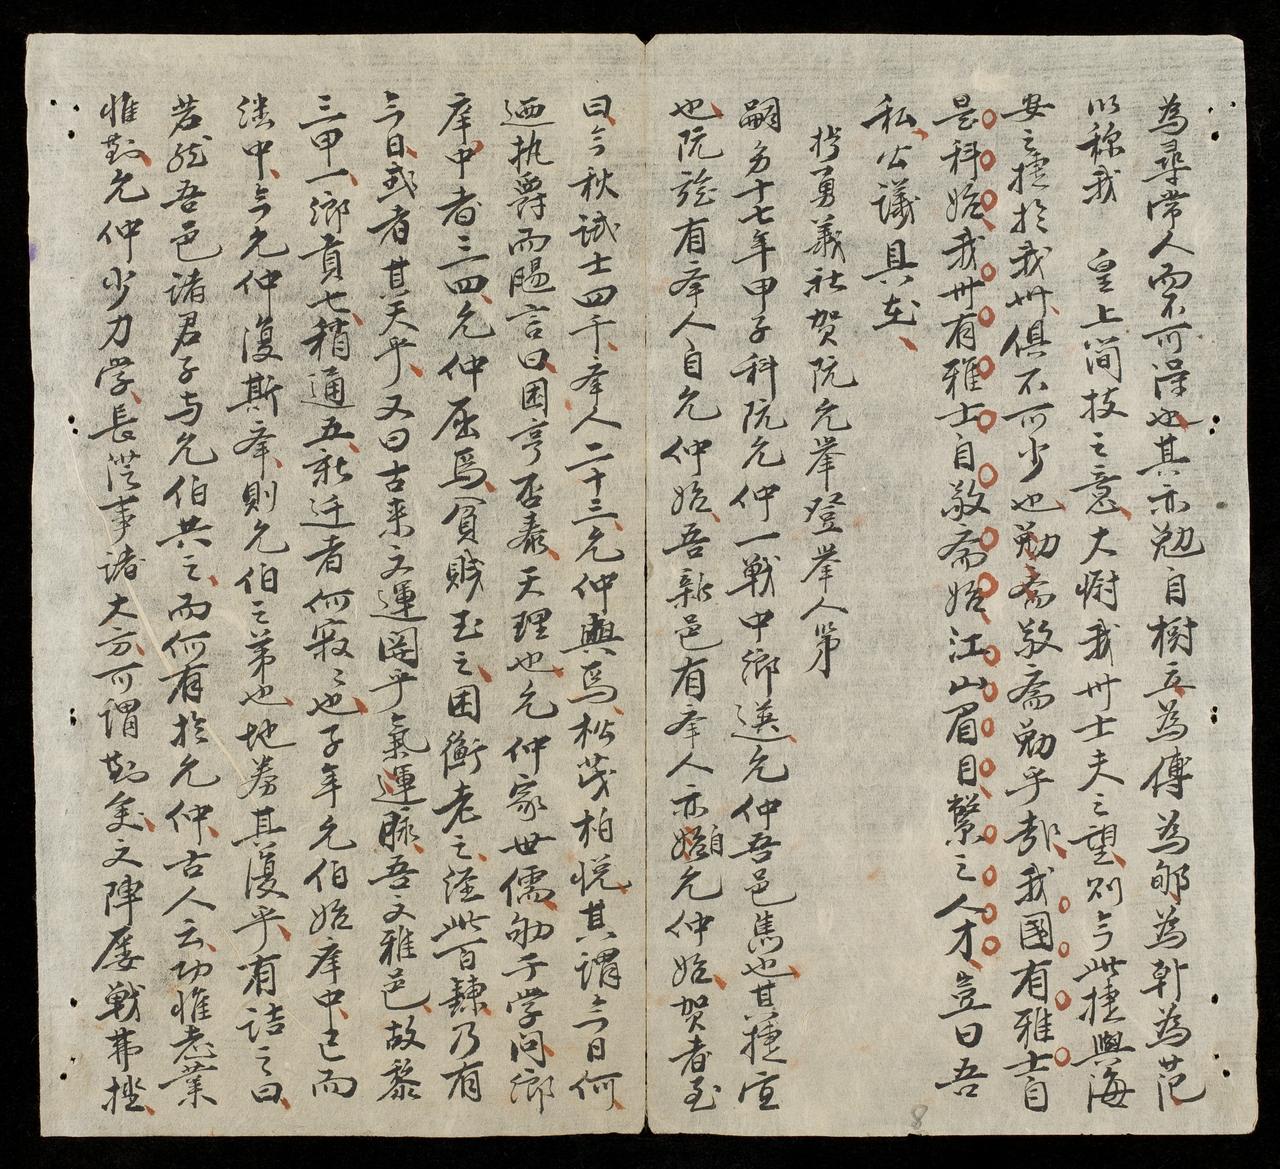 為尋常人而不可深也其亦勉自樹立為傅為郇為斬為范
以稱我　皇上簡技之意大慰我卅士夫之望則今此捷與海
安之捷於我卅俱不可少也勛斋敬斋勛乎哉我國有雅士自
是科始我卅有雅士自敬斋始江山眉目繫之人才豈曰吾
私公議具在
拷勇義社贺阮允举登举人第
嗣务十七年甲子科阮允仲一戰中鄉選允仲吾邑雋也其捷宜
也阮族有举人自允仲始吾新邑有举人亦自允仲始贺者至
曰今秋試士四千举人二十三允仲與焉松茂柏悦其謂今日何
迺执爵而賜言曰困亨否泰天理也允仲家世儒劬于学问鄉
庠中者三四允仲屈焉貧賤玉之困衡老之淫此百鍊乃有
今日或者其天乎又曰古来文運関乎氣運脉吾文雅邑故黎
三甲一鄉貢七稍通五新迁者何寂々也子年允伯始庠中已而
泮中今允仲復斯举則允伯之弟也地券其復乎有诘之曰
若然吾邑诸君子与允伯共之而何有於允仲古人云功惟志業
惟勤允仲少力学長從事诸大方可謂勤矣文陣屡戰弗挫